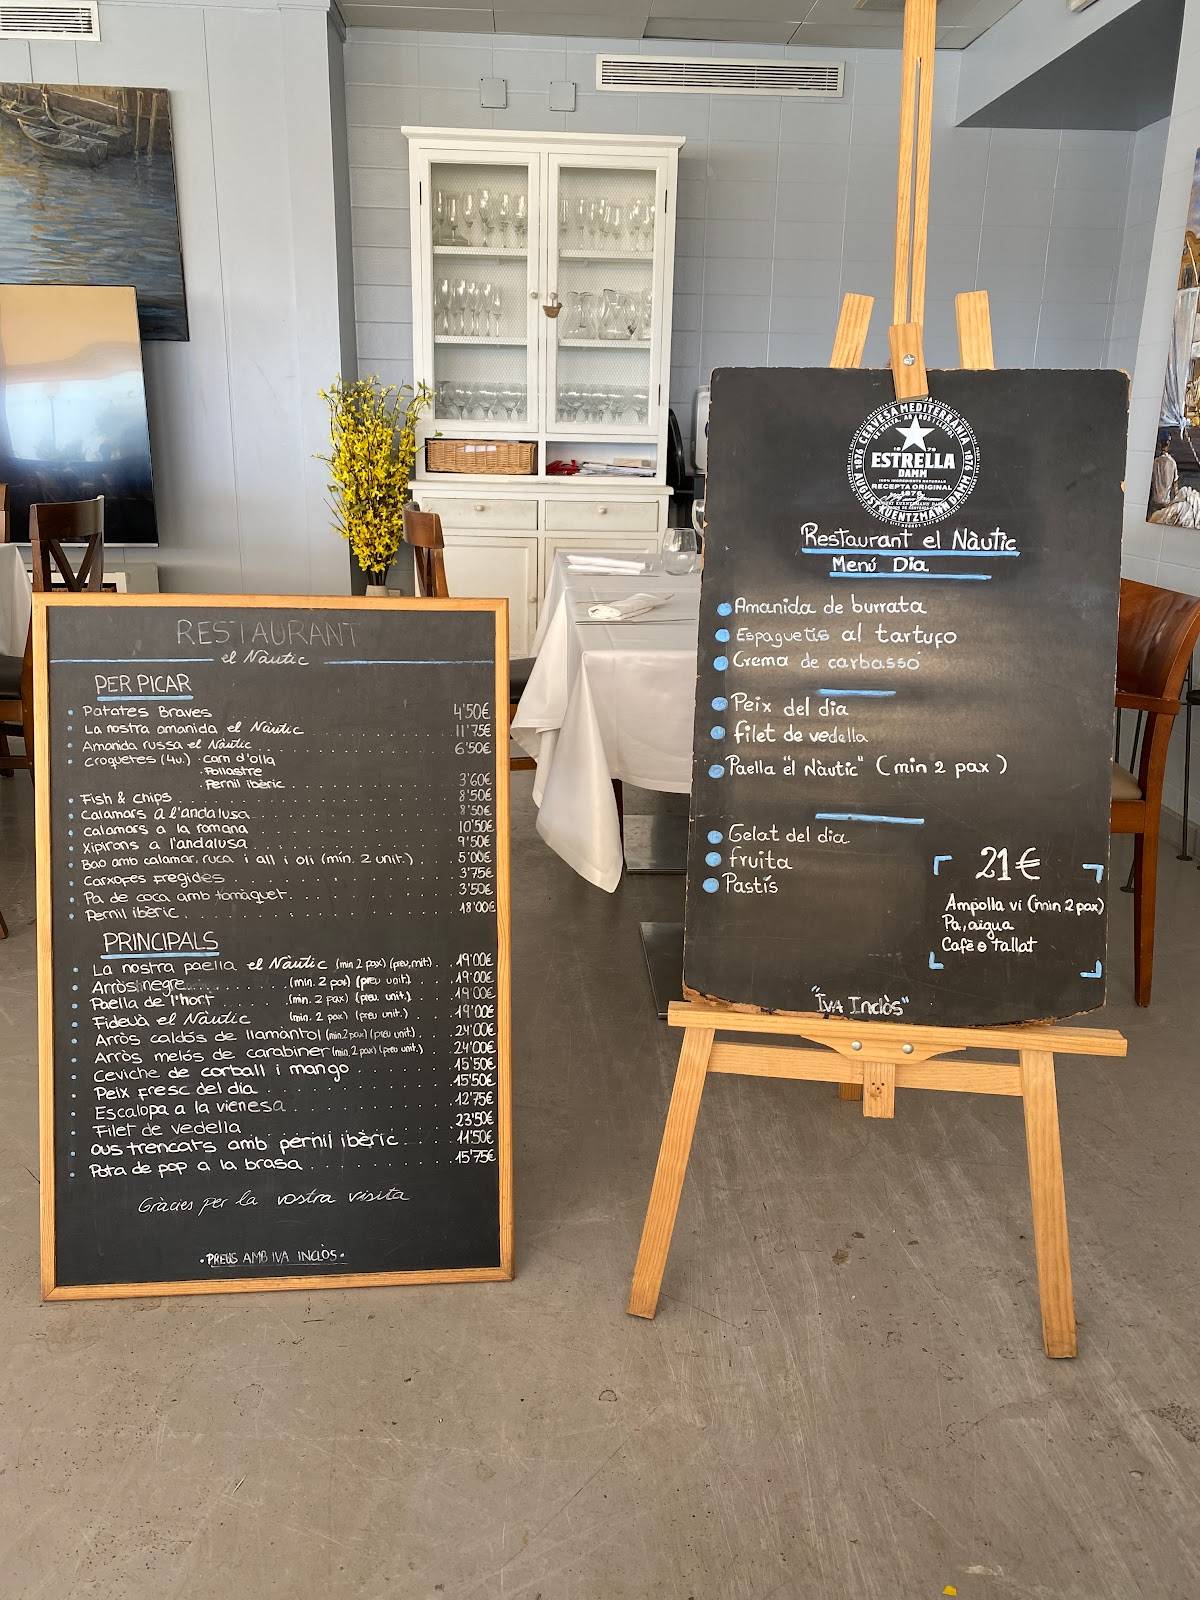 RESTAURANT
el Nàutic
PER PICAR
Patates Braves 4'50€
La nostra amanida el Nàutic 11'75€
Amanida russa el Nàutic 6'50€
Croquetes (4u.) · carn d'olla
· Pollastre
· Pernil ibèric 3'60€
Fish & chips 8'50€
Calamars a l'andalusa 8'50€
Calamars a la romana 10'50€
Xipirons a l'andalusa 9'50€
Bao amb calamar, ruca i all i oli (mín. 2 unit.) 5'00€
Carxofes fregides 3'75€
Pa de coca amb tomàquet 3'50€
Pernil ibèric 18'00€
PRINCIPALS
La nostra paella el Nàutic (min 2 pax) (preu unit.) 19'00€
Arròs negre (min. 2 pax) (preu unit.) 19'00€
Paella de l'hort (min. 2 pax) (preu unit.) 19'00€
Fideuà el Nàutic (min. 2 pax) (preu unit.) 19'00€
Arròs caldós de llamàntol (min. 2 pax) (preu unit.) 24'00€
Arròs melós de carabiner (min. 2 pax) (preu unit.) 24'00€
Ceviche de corball i mango 15'50€
Peix fresc del dia 15'50€
Escalopa a la vienesa 12'75€
Filet de vedella 23'50€
Ous trencats amb pernil ibèric 11'50€
Pota de pop a la brasa 15'75€
Gràcies per la vostra visita
· PREUS AMB IVA INCLÒS ·
CERVESA MEDITERRÀNIA
DE MALTA, ARRÒS I LLÚPOL
1876 1876
ESTRELLA
DAMM
100% INGREDIENTS NATURALS
RECEPTA ORIGINAL
1876
AUGUST KUENTZMANN DAMM
Restaurant el Nàutic
Menú Dia
Amanida de burrata
Espaguetis al tartufo
Crema de carbassó
Peix del dia
filet de vedella
Paella "el Nàutic" (min 2 pax)
Gelat del dia
fruita
Pastís
21€
Ampolla vi (min 2 pax)
Pa, aigua
Cafè o tallat
"Iva Inclòs"